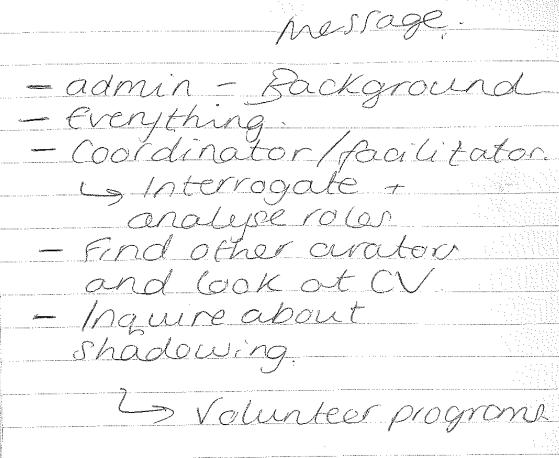 message.
- admin - Background
- Everything.
- Coordinator/facilitator.
↳ Interrogate +
analyse roles
- Find other curators
and look at CV
- Inquire about
shadowing.
↳ Volunteer programs